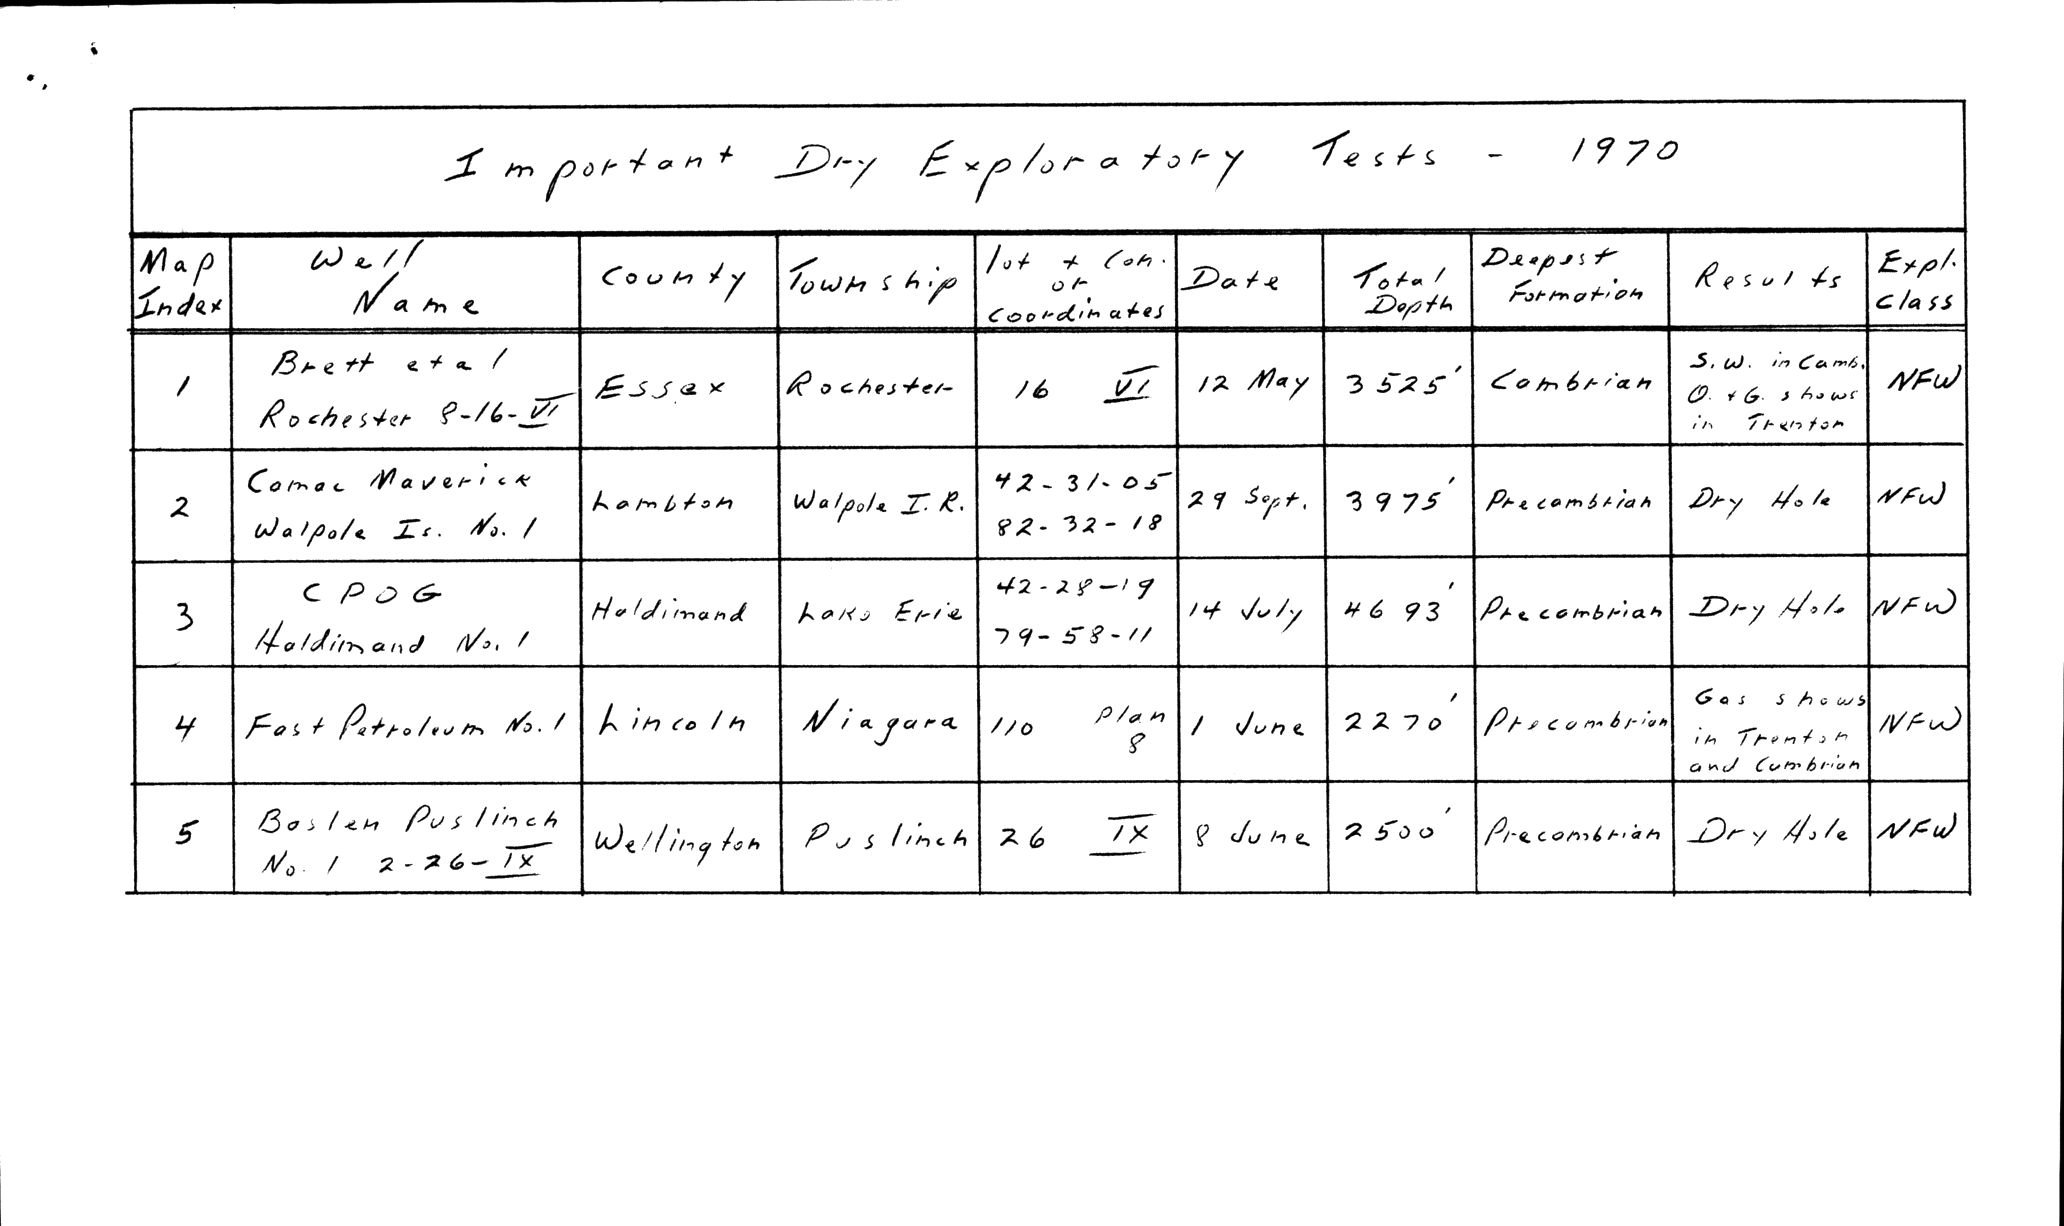 Important Dry Exploratory Tests - 1970
Map Index
Well Name
County
Township
lot + Con. or coordinates
Date
Total Depth
Deepest Formation
Results
Expl. class
1
Brett et al
Rochester 8-16-VI
Essex
Rochester
16 VI
12 May
3525'
Cambrian
S.W. in Camb.
O. + G. shows
in Trenton
NFW
2
Comac Maverick
Walpole Is. No. 1
Lambton
Walpole I.R.
42-31-05
82-32-18
29 Sept.
3975'
Precambrian
Dry Hole
NFW
3
CPOG
Haldimand No. 1
Haldimand
Lake Erie
42-28-19
79-58-11
14 July
4693'
Precambrian
Dry Hole
NFW
4
Fast Petroleum No. 1
Lincoln
Niagara
110 Plan 8
1 June
2270'
Precambrian
Gas shows
in Trenton
and Cambrian
NFW
5
Boslen Puslinch
No. 1 2-26-IX
Wellington
Puslinch
26 IX
8 June
2500'
Precambrian
Dry Hole
NFW